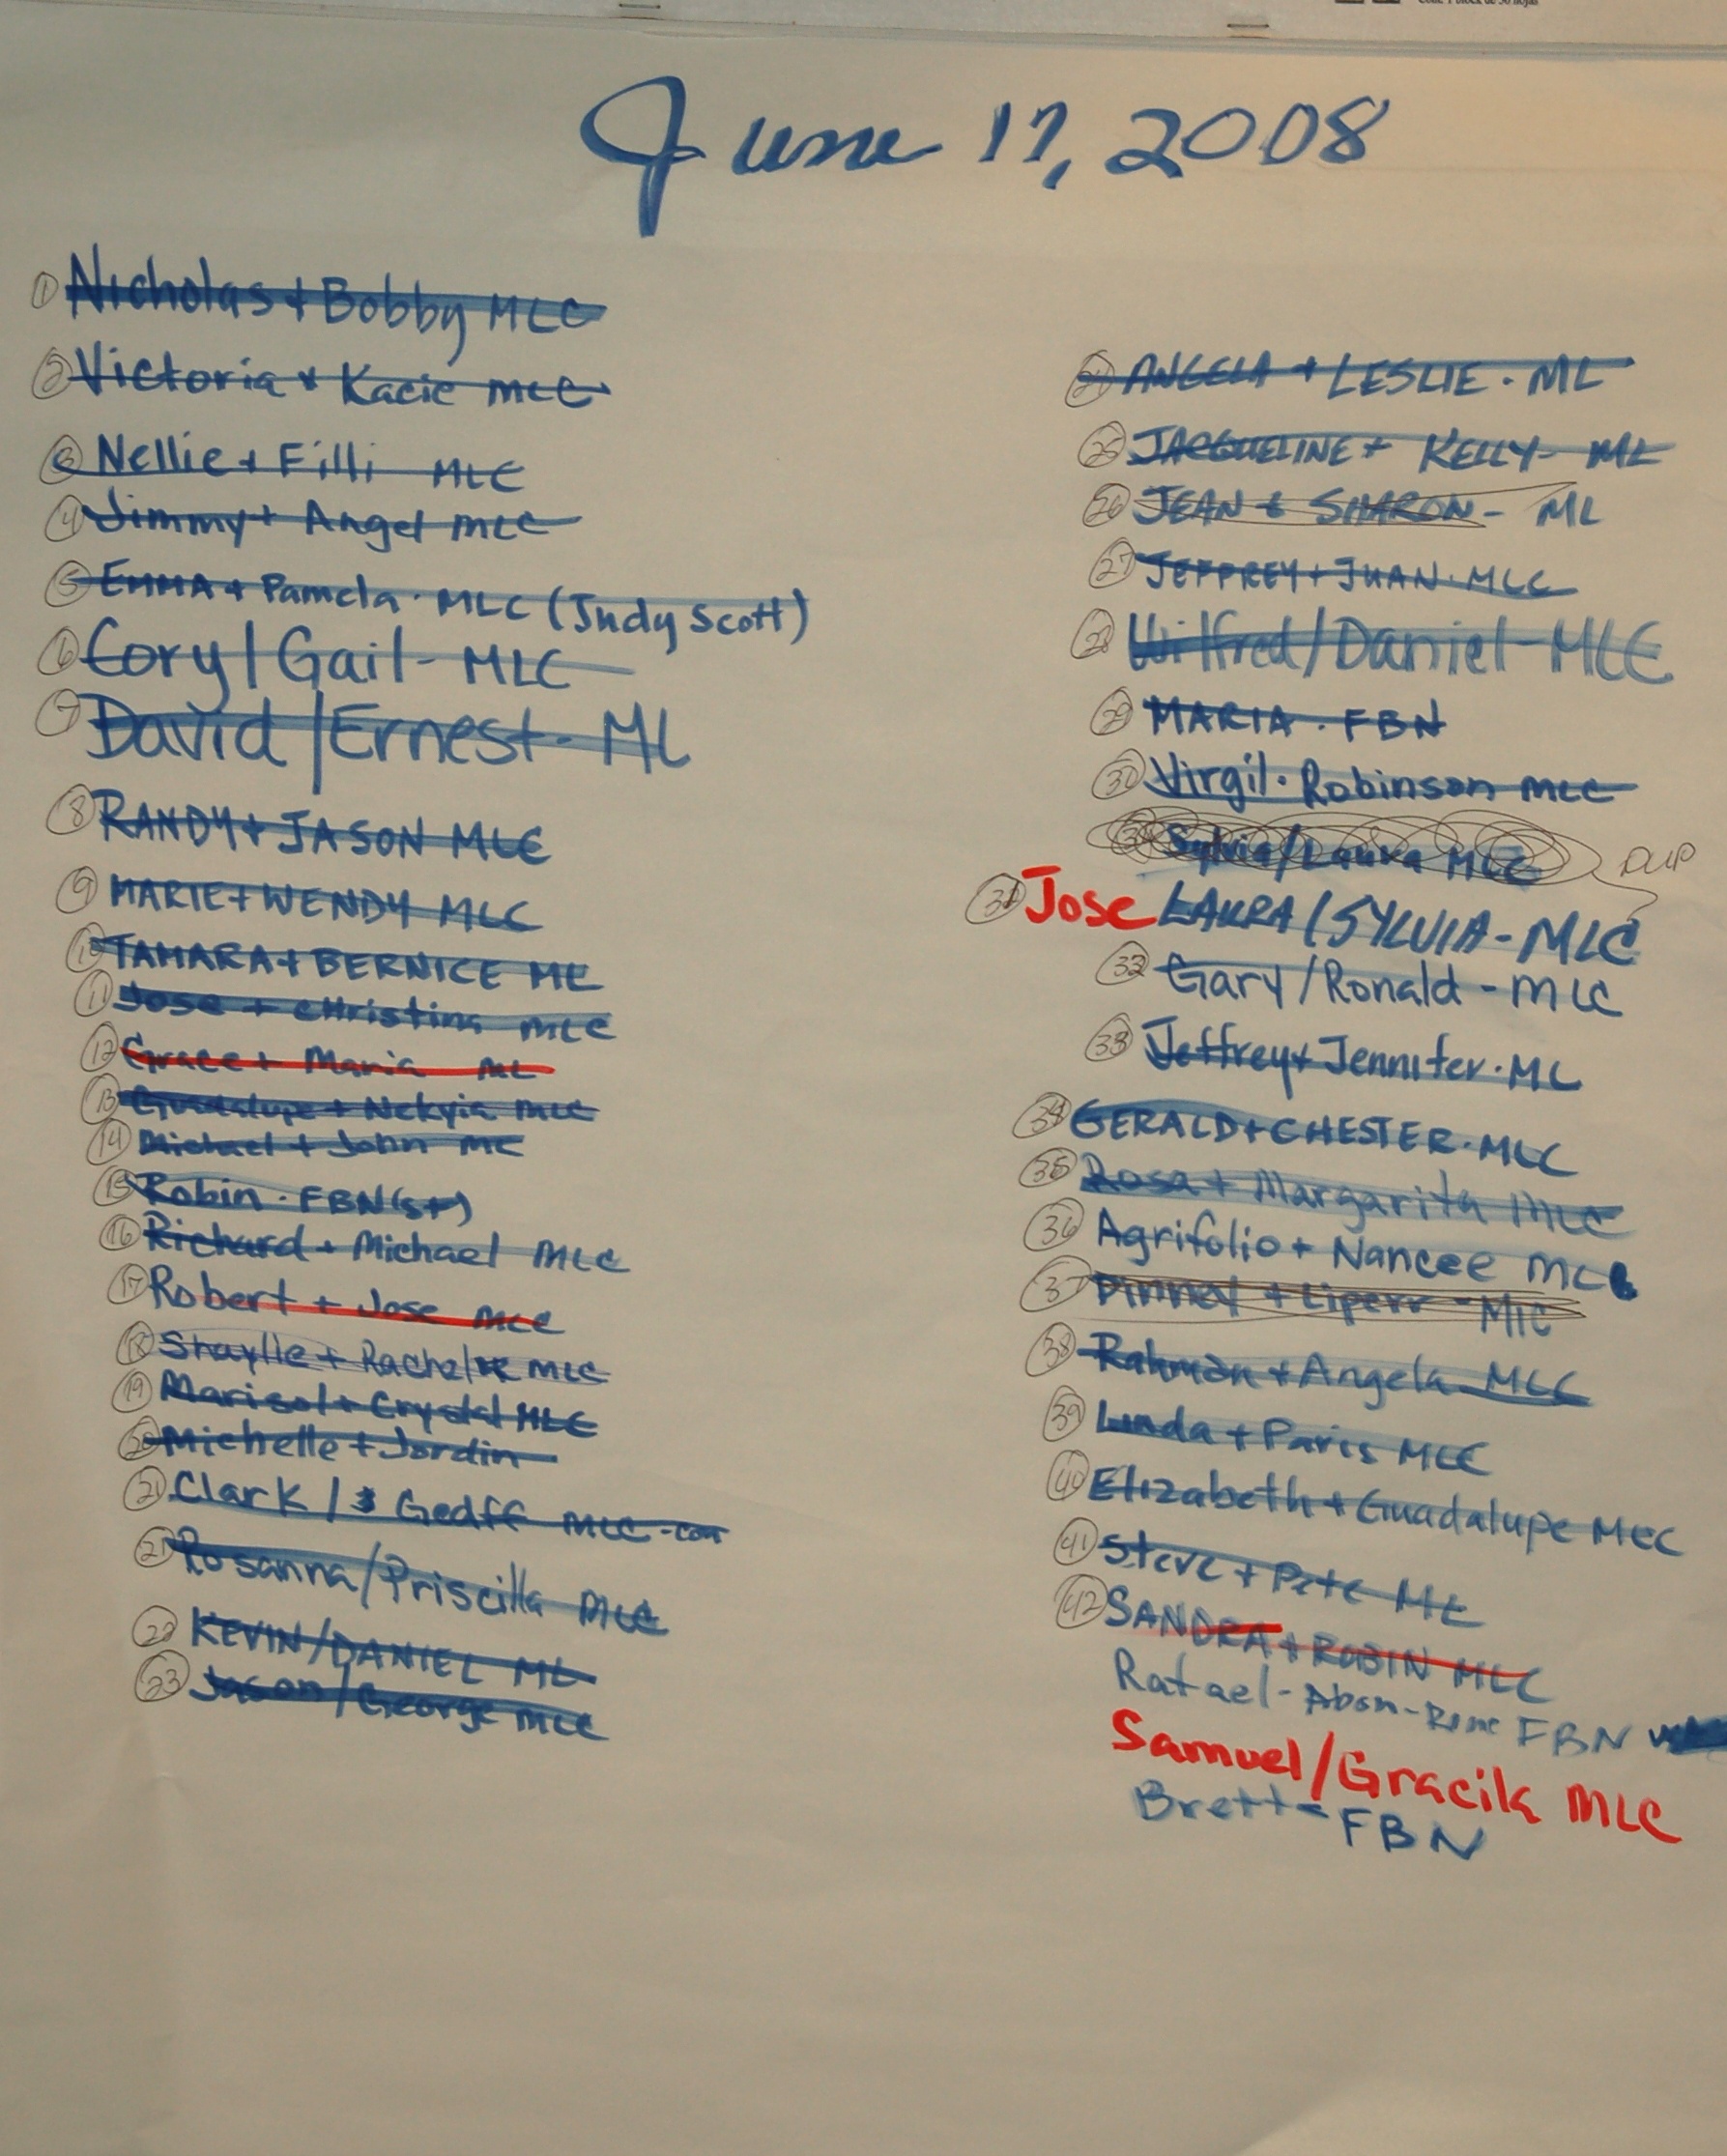 Cont. 1 block de 50 hojas
June 17, 2008
① Nicholas + Bobby MLC
② Victoria + Kacie MLC
③ Nellie + Filli MLC
④ Jimmy + Angel MLC
⑤ EMMA + Pamela. MLC (Judy Scott)
⑥ Cory / Gail - MLC
⑦ David / Ernest - ML
⑧ RANDY + JASON MLC
⑨ MARIE + WENDY MLC
⑩ TAMARA + BERNICE ML
⑪ Jose + christina MLC
⑫ Grace + Maria ML
⑬ Guadalupe + Nekyia MLC
⑭ Michael + John ML
⑮ Robin. FBN (st)
⑯ Richard + Michael MLC
⑰ Robert + Jose MLC
⑱ + MLC
⑲ Marisol + Crystal MLC
⑳ Michelle + Jordin
㉑ Clark / Geoff MLC -con
㉑ Rosanna / Priscilla MLC
㉒ KEVIN / DANIEL ML
㉓ Jason / George MLC
㉔ ANGELA + LESLIE. ML
㉕ JACQUELINE + KELLY - ML
㉖ JEAN & SHARON - ML
㉗ JEFFREY + JUAN. MLC
㉘ Wilfred / Daniel - MLC
㉙ MARIA. FBN
㉚ Virgil. Robinson MLC
Sylvia / Laura MLC DUP
㉛ Jose LAURA / SYLVIA - MLC
㉜ Gary / Ronald - MLC
㉝ Jeffrey + Jennifer. ML
㉞ GERALD + CHESTER. MLC
㉟ Rosa + Margarita MLC
㊱ Agrifolio + Nancee MLC
㊲ + MLC
㊳ Rahman + Angela MLC
㊴ Linda + Paris MLC
㊵ Elizabeth + Guadalupe MLC
㊶ Steve + Pete ML
㊷ SANDRA + ROBIN MLC
Rafael - FBN
Samuel / Gracila MLC
Brett - FBN